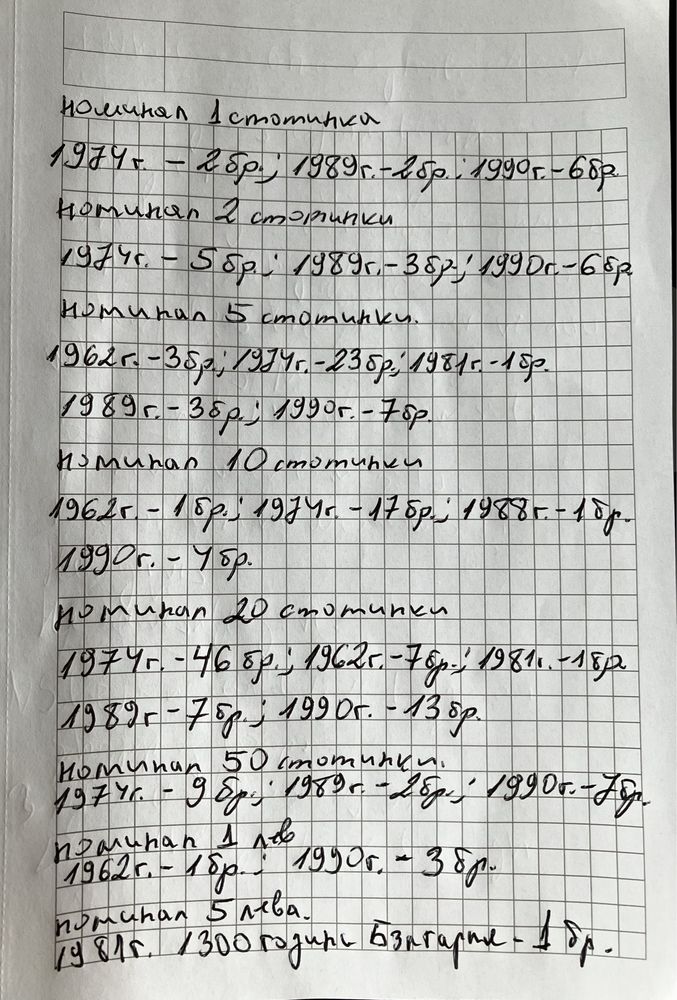 номинал 1 стотинка
1974г. - 2бр.; 1989г. - 2бр.; 1990г. - 6бр.
номинал 2 стотинки
1974г. - 5бр.; 1989г. - 3бр.; 1990г. - 6бр
номинал 5 стотинки.
1962г. - 3бр.; 1974г. - 23бр.; 1981г. - 1бр.
1989г. - 3бр.; 1990г. - 7бр.
номинал 10 стотинки
1962г. - 1бр.; 1974г. - 17бр.; 1988г. - 1бр.
1990г. - 4бр.
номинал 20 стотинки
1974г. - 46бр.; 1962г. - 7бр.; 1981г. - 1бр
1989г - 7бр.; 1990г. - 13бр.
номинал 50 стотинки.
1974г. - 9бр.; 1989г. - 2бр.; 1990г. - 7бр.
номинал 1 лев
1962г. - 1бр.; 1990г. - 3бр.
номинал 5 лева.
1981г. 1300 години България - 1 бр.